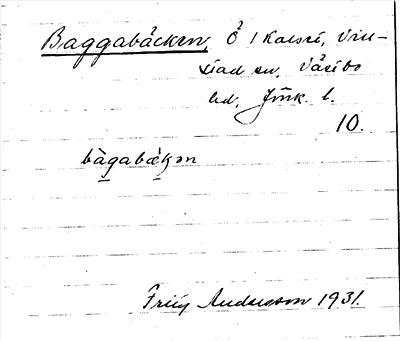 Baggabäcken, Å i Kalvsvi, Vill-
stad sn, Västbo
hd, Jönk. l.
10.
bàgabækən
Frey Andersson 1931.